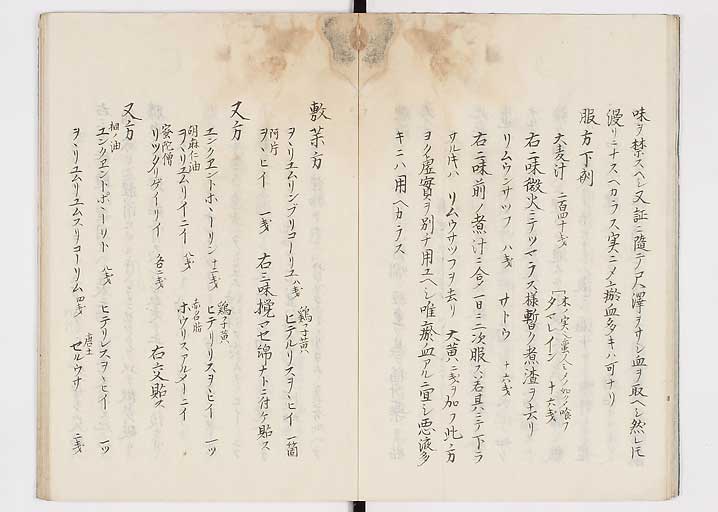 味ヲ禁スヘシ又証ニ隨テ尺澤ヲサシ血ヲ取ヘシ然レ𪜈
漫リニナスヘカラス実ニメ瘀血多キハ可ナリ
服方下剤
大麦汁 二百四十戔 タマレイン 十六戔
木ノ実ハ蛮人ミソノ如ク喰フ
右二味微火ニテツマラス様暫ク煮渣ヲ去リ
リムウンサッフ 八戔 サトウ 十六戔
右二味前ノ煮汁ニ合シ一日ニ二次服ス若其ニテ下ラ
サルキハ リムウサッフヲ去リ 大黄 二戔ヲ加フ此ノ方
ヨク虚實ヲ別チ用ユヘシ唯瘀血アルニ宜シ悪液多
キニハ用ヘカラス
敷薬方
ヲヽリユムリンブリコーリユ 八戔 鶏子黄 ヒテルリスヲヽヒイ 一箇
阿片
ヲヽヒイ 一戔 右三味攪マセ綿ナトニ付ケ貼ス
又方
エンクエントホヽーリン 十二戔 鶏子黄 ヒテーリリスヲヽヒイ 一ツ
胡麻仁油
ヲヽリユムリイニイ 八戔 ホウリスアルメーニイ
蜜陀僧
リツタリゲイリイ 各二戔 右交貼ス
又方
柚ノ油
エンクエントポヽーリト 八戔 ヒテリレスヲヽヒイ 一ツ
ヲヽリユムリユムスリコーリム 四戔 唐土 セルウサ 二戔